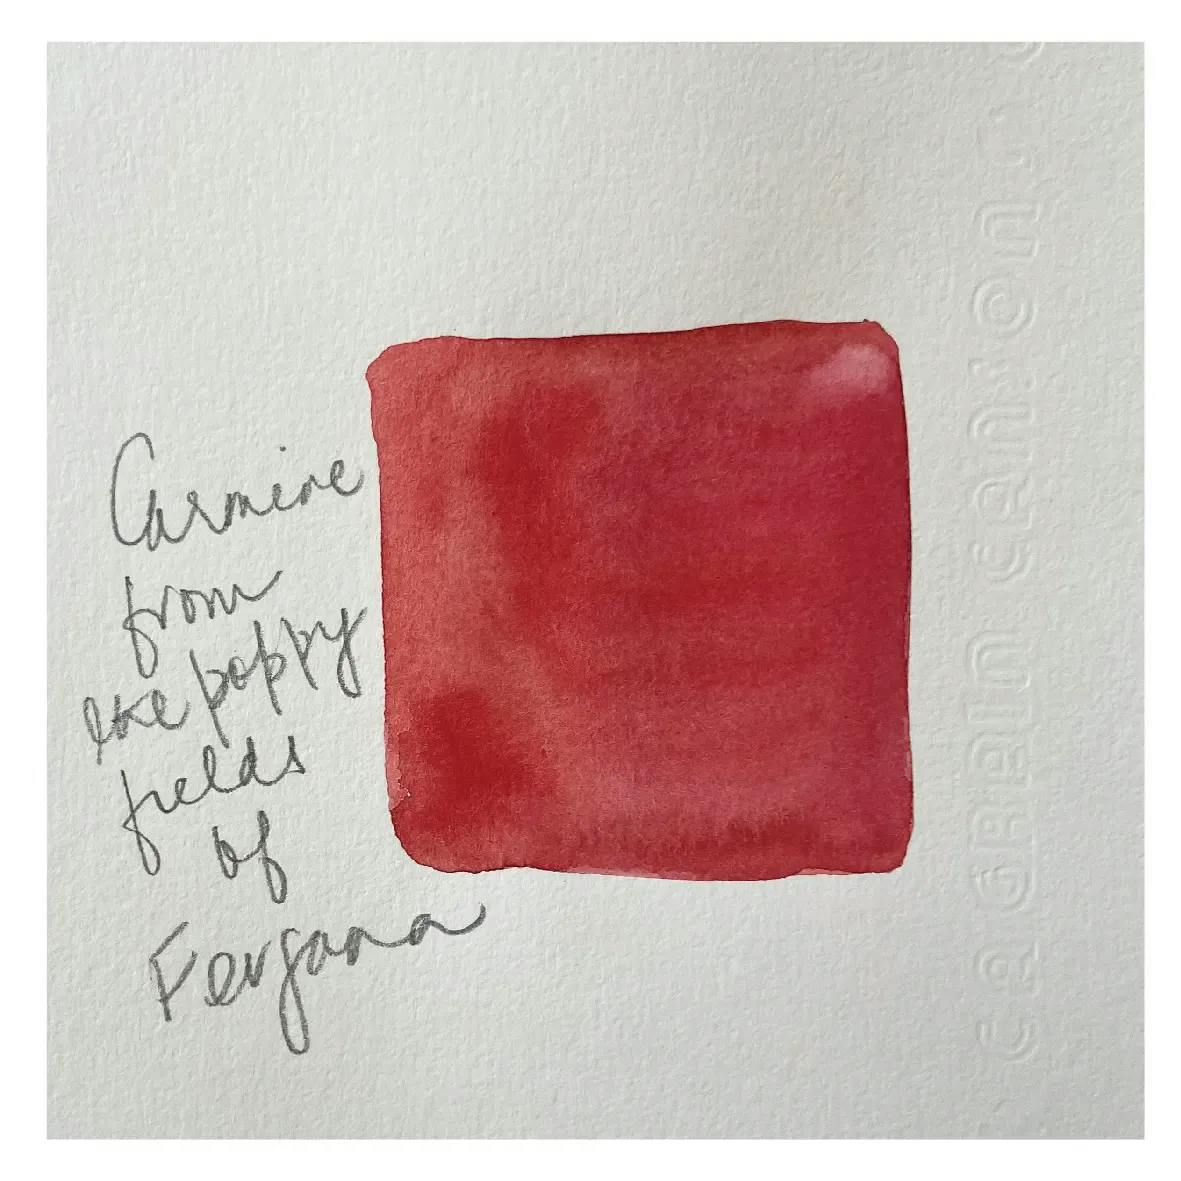 Carmine
from
the poppy
fields
of
Fergana
C à GRAIN CANSON